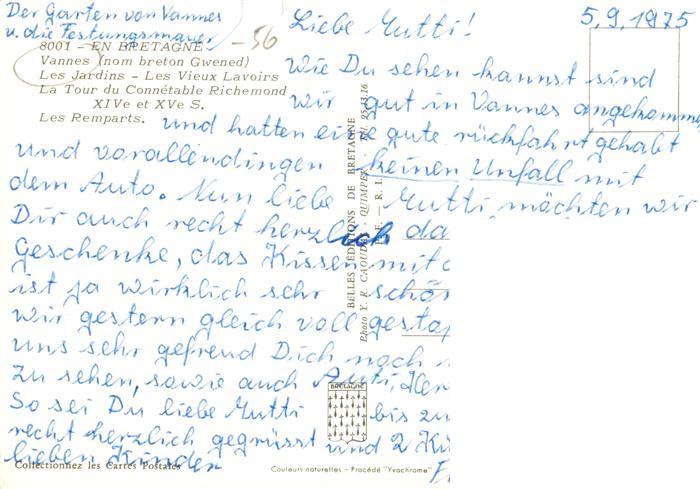 Der Garten von Vannes
u. die Festungsmauer
8001 - EN BRETAGNE
Vannes (nom breton Gwened)
Les Jardins - Les Vieux Lavoirs
La Tour du Connétable Richemond
XIVe et XVe S.
Les Remparts.
-56
5.9.1975
Liebe Mutti!
Wie Du sehen kannst sind
wir gut in Vannes angekomme
und hatten eine gute rückfahrt gehabt
und vorallendingen keinen Unfall mit
dem Auto. Nun liebe Mutti, möchten wir
Dir auch recht herzlich da
Geschenke, das Kissen mit d
ist ja wirklich sehr schön
wir gestern gleich voll gestop
uns sehr gefreud Dich noch
zu sehen, sowie auch
So sei Du liebe Mutti bis zu
recht herzlich gegrüsst und 2 Kü
lieben Kinder
BELLES ÉDITIONS DE BRETAGNE
Photo Y. R. CAOUDAL - QUIMPER
BRETAGNE
Collectionnez les Cartes Postales
Couleurs naturelles - Procédé "Yvachrome"